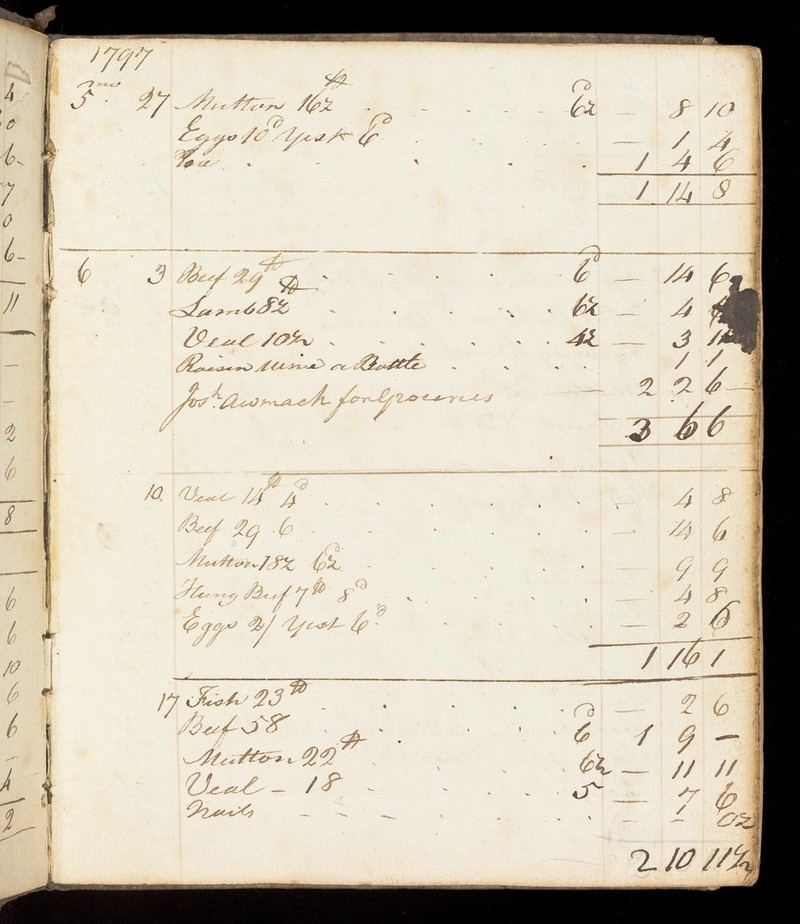 1797
5 mo 27 Mutton 16½ lb 6½d — 8 10
Eggs 10d Yest 6d — 1 4
1 4 6
1 14 8
6 3 Beef 29 lb 6d — 14 6
Lamb 8½ lb 6½ — 4
Veal 10½ 4½ — 3 11
Raisin Wine a Bottle 1 1
Josh. Awmack for Groceries — 2 2 6 —
3 6 6
10 Veal 14 lb 4d — 4 8
Beef 29 6 — 14 6
Mutton 18½ 6½d — 9 9
Hung Beef 7 lb 8d — 4 8
Eggs 2/ Yest 6d — 2 6
1 16 1
17 Fish 23 lb — 2 6
Beef 58 6d 1 9 —
Mutton 22 lb 6½ — 11 11
Veal — 18 5 — 7 6
Nails — — 0½
2 10 11½
4
0
6-
7
0
6-
11
—
—
2
6
8
6
6
10
6
6
-
4
2